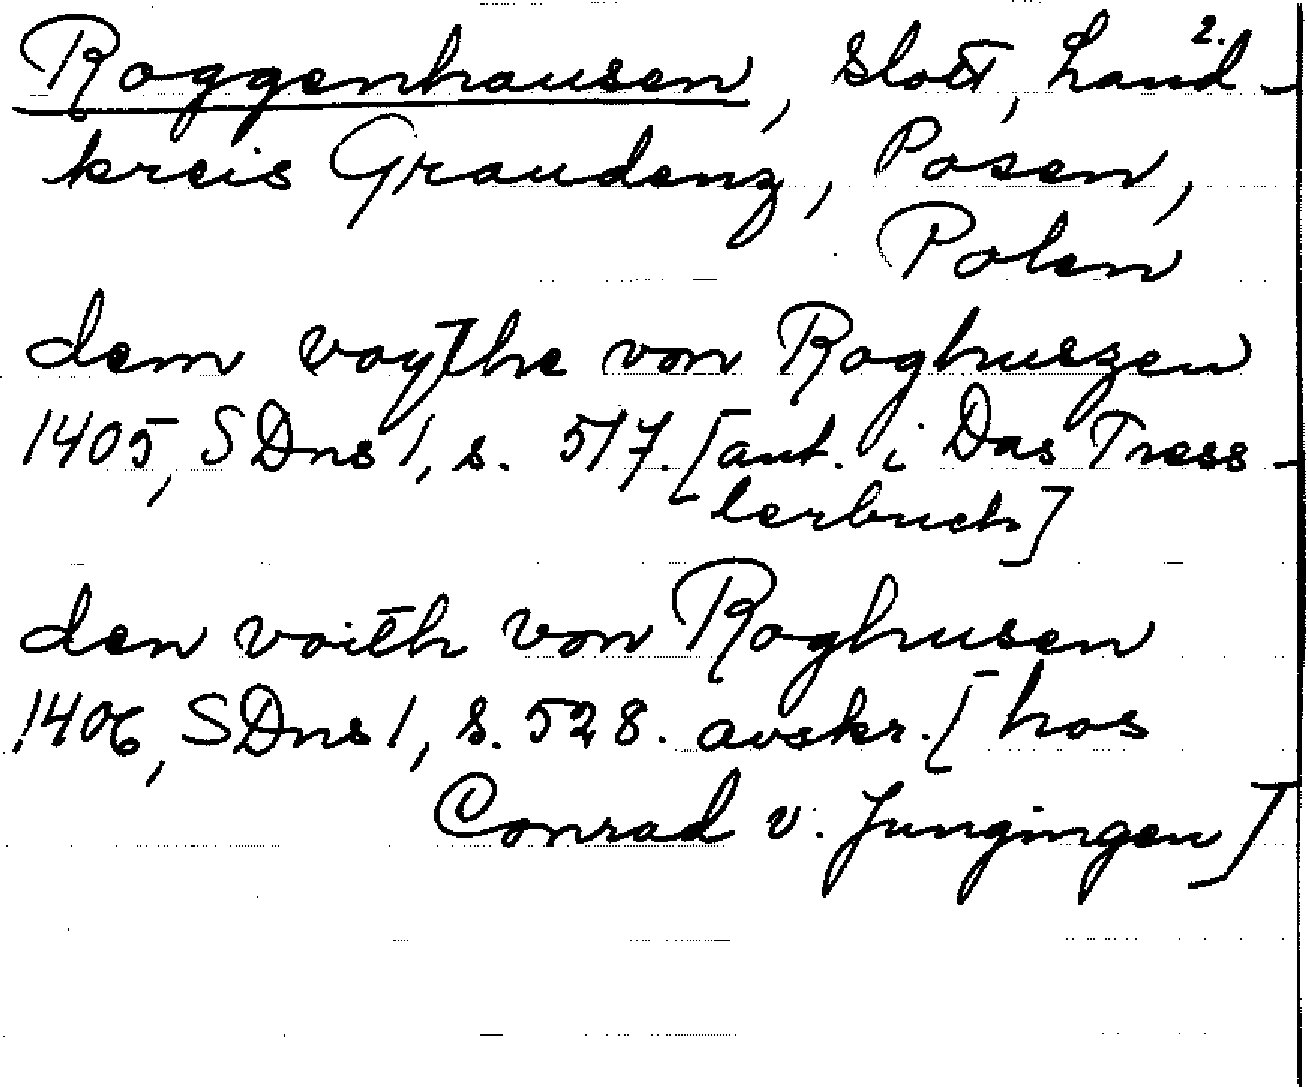 2.
Roggenhausen, slott, Land-
kreis Graudenz, Posen,
Polen
dem voythe von Roghuszen
1405, SDns 1, s. 517. [ant. i Das Tress-
lerbuch]
den voith von Roghusen
1406, SDns 1, s. 528. avskr. [hos
Conrad v. Jungingen]